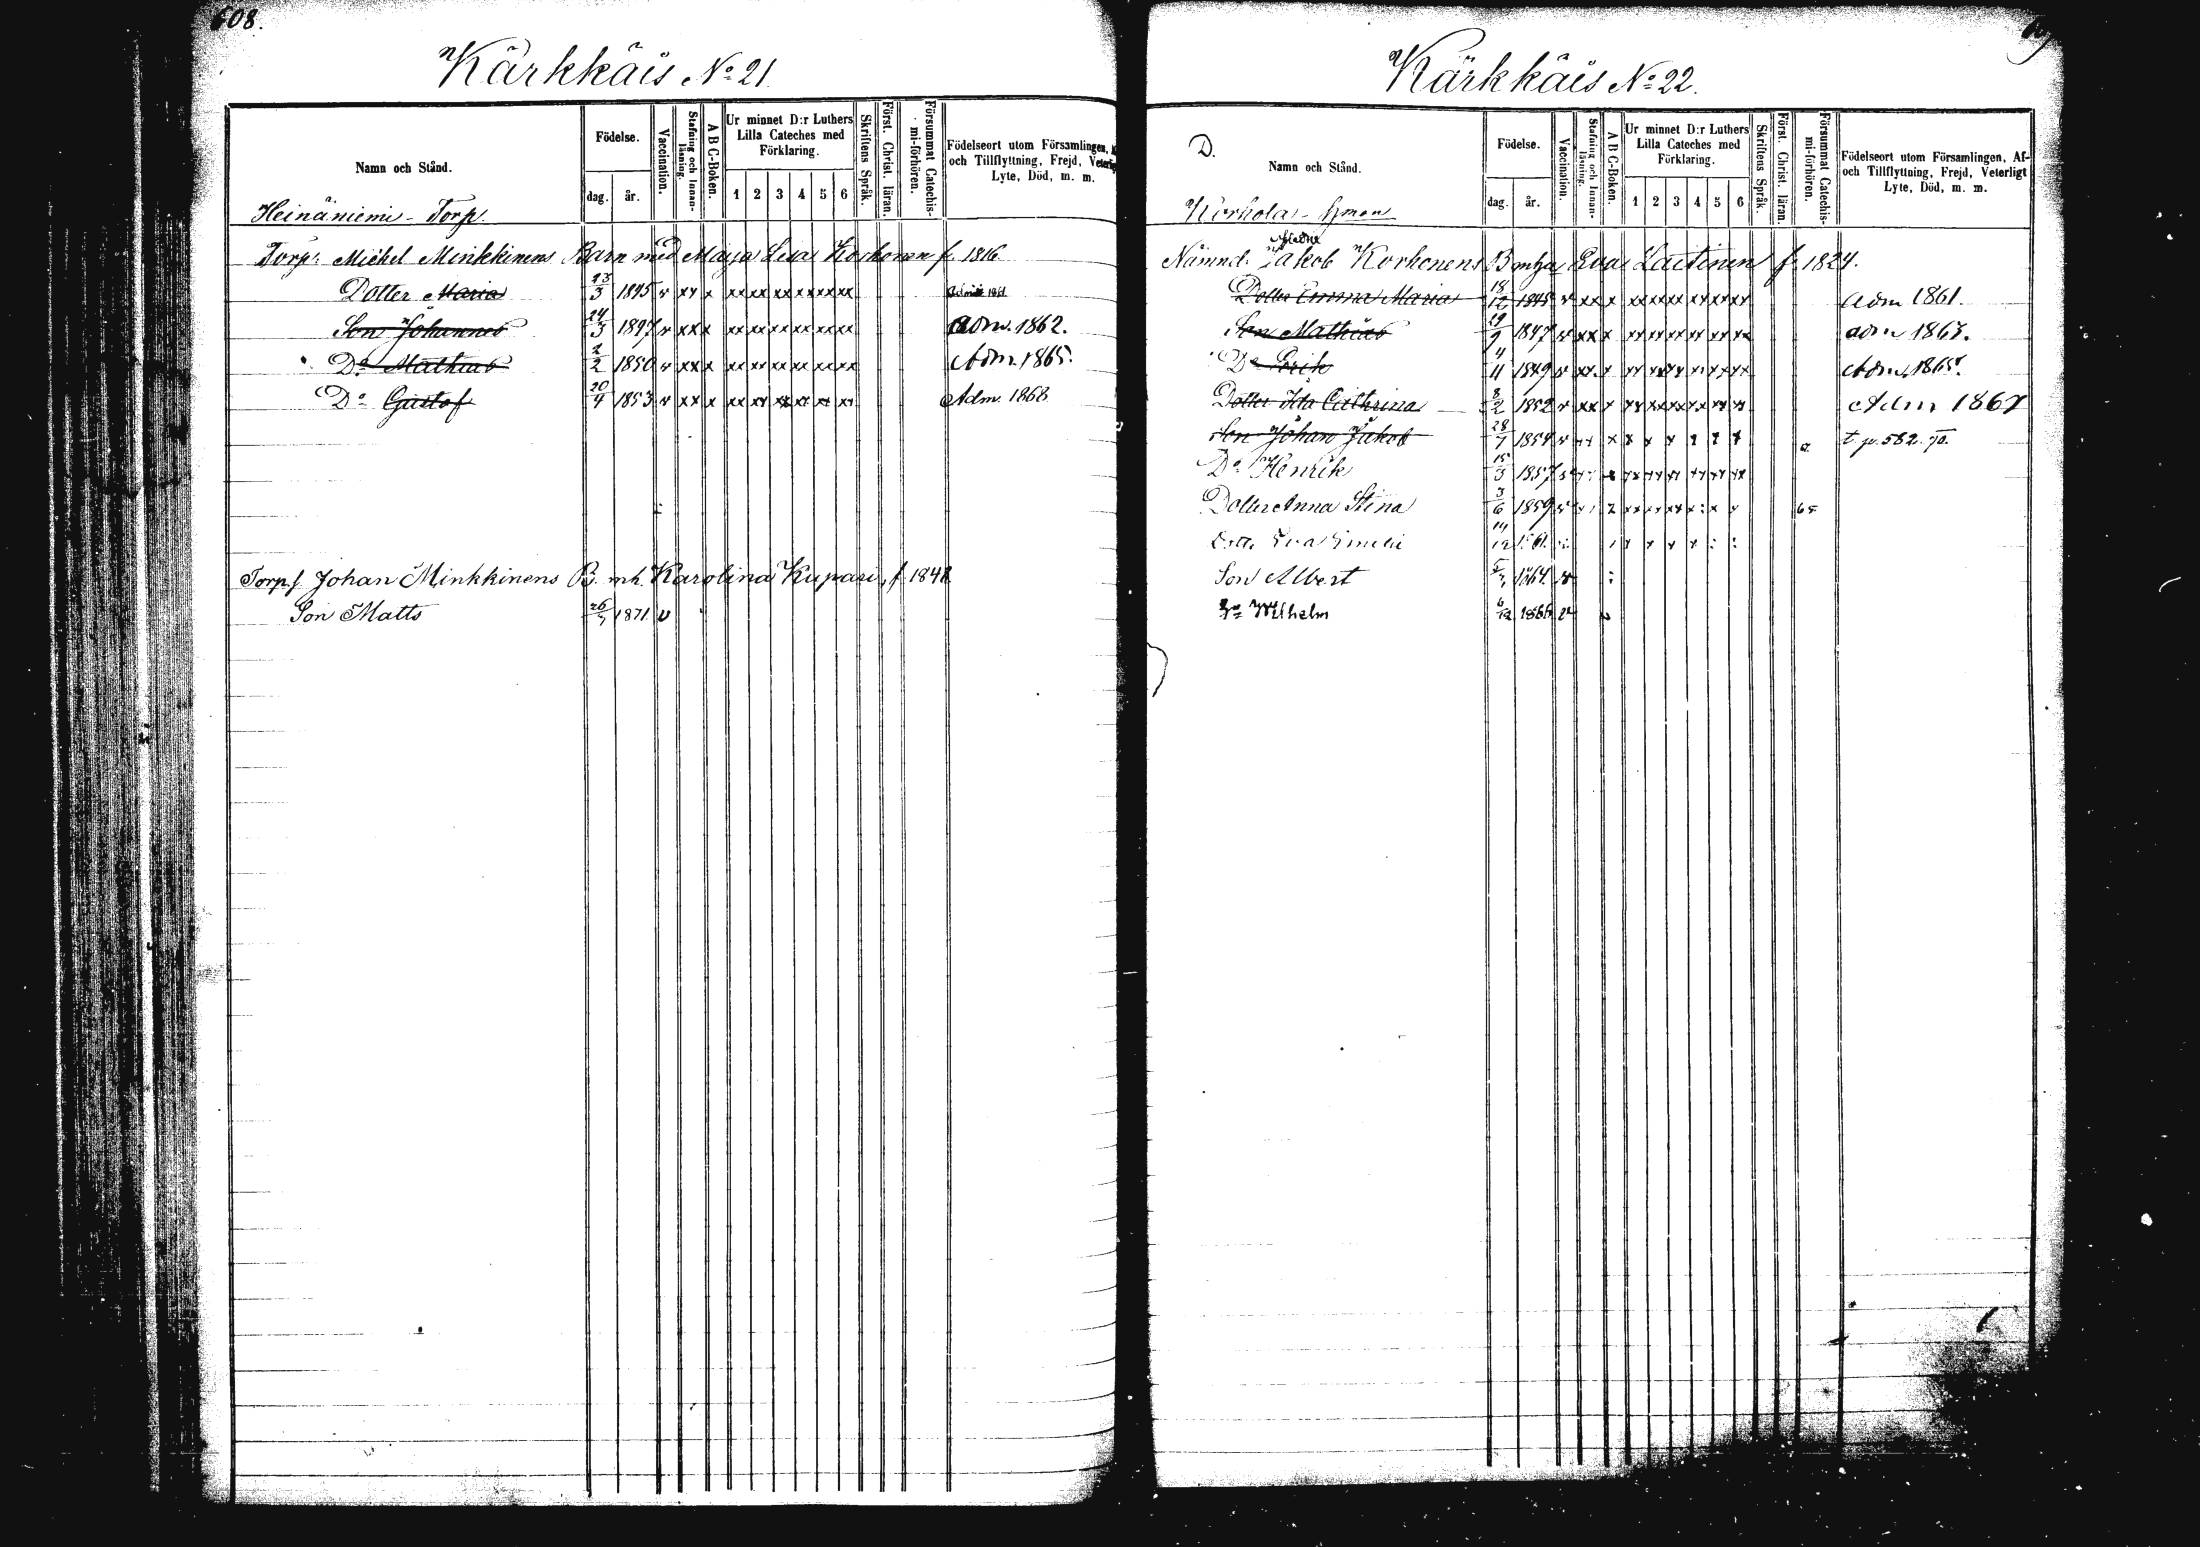 608.
Kärkkäis No 21
Namn och Stånd.
Födelse.
dag.
år.
Vaccination.
Stafning och Innan-läsning.
A B C-Boken.
Ur minnet D:r Luthers
Lilla Cateches med
Förklaring.
1 2 3 4 5 6
Skriftens Språk.
Först. Christ. läran.
Försummat Catechis-mi-förhören.
Födelseort utom Församlingen,
och Tillflyttning, Frejd,
Lyte, Död, m. m.
Heinäniemi - Torp.
Torp: Michel Minkkinens Barn med Maija Lisa Korhonen f. 1816
Dotter Maria 3 1845 v xx x xx xx xx xx xx xx
Son Johannes 24/3 1847 v xx x xx xx xx xx xx xx Adm. 1862.
Do Mathias 2/2 1850 v xx x xx xx xx xx xx xx Adm. 1865.
Do Gustof 20/4 1853 v xx x xx xx xx xx xx xx Adm. 1868
Torp.s. Johan Minkkinens B. mh. Karolina Kupari, f. 1848
Son Matts 1871. v
Kärkkäis No 22.
D.
Namn och Stånd.
Födelse.
dag.
år.
Vaccination.
Stafning och Innan-läsning.
A B C-Boken.
Ur minnet D:r Luthers
Lilla Cateches med
Förklaring.
1 2 3 4 5 6
Skriftens Språk.
Först. Christ. läran.
Försummat Catechis-mi-förhören.
Födelseort utom Församlingen, Af-
och Tillflyttning, Frejd, Veterligt
Lyte, Död, m. m.
Korhola - Hman
Nämnd. Jakob Korhonens B mha Eva Laitinen f. 1824.
Dotter Emma Maria 18/12 1845 v xx x xx xx xx xx xx xx Adm 1861.
Son Mathias 19/9 1847 v xx x xx xx xx xx xx xx adm 1863.
Do Erik 4/11 1849 v xx x xx xx xx xx xx xx Adm. 1865.
Dotter Ida Cathrina 8/2 1852 v xx x xx xx xx xx xx xx Adm 1867
Son Johan Jakob 28/7 1854 v t. p. 582. 70.
Do Henrik 15/3 1857
Dotter Anna Stina 3/6 1859 65
Dott. Eva 1861.
Son Albert 1864. v
Do Wilhelm 6/12 1866 v